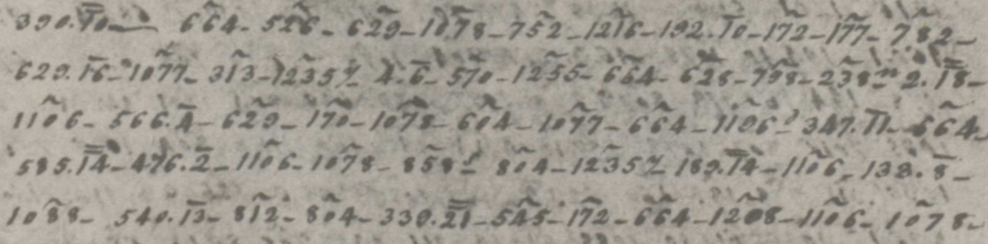 390.10— 664- 526- 629-1078-752-1216-192.10-172-177-782-
629.16-1077-313-1235% 4.6-570-1255-664-628-798-238 2.18-
1106-566.4-629-170-1078-604-1077-664-1106! 347.11-664-
585.14-476.2-1106-1078-858! 804-1235% 189.14-1106-138.8-
1088- 540.13-812-804-339.21-545-172-664-1208-1106-1078-